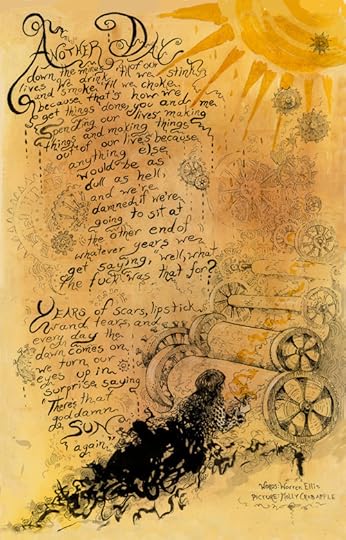 ANOTHER DAY
down the mines of our
lives. We drink 'til we stink,
and smoke 'til we choke
because that's how we
get things done, you and me.
Spending our lives making
things and making things
out of our lives because
anything else
would be as
dull as hell,
and we're
damned if we're
going to sit at
the other end of
whatever years we
get saying, "well, what
the fuck was that for?
YEARS of scars, lipstick
and tears, and
every day the
dawn comes on,
we turn our
eyes up in
surprise saying
"There's that
god damn
SUN
again."
WORDS: Warren Ellis
PICTURE: MOLLY CRABAPPLE